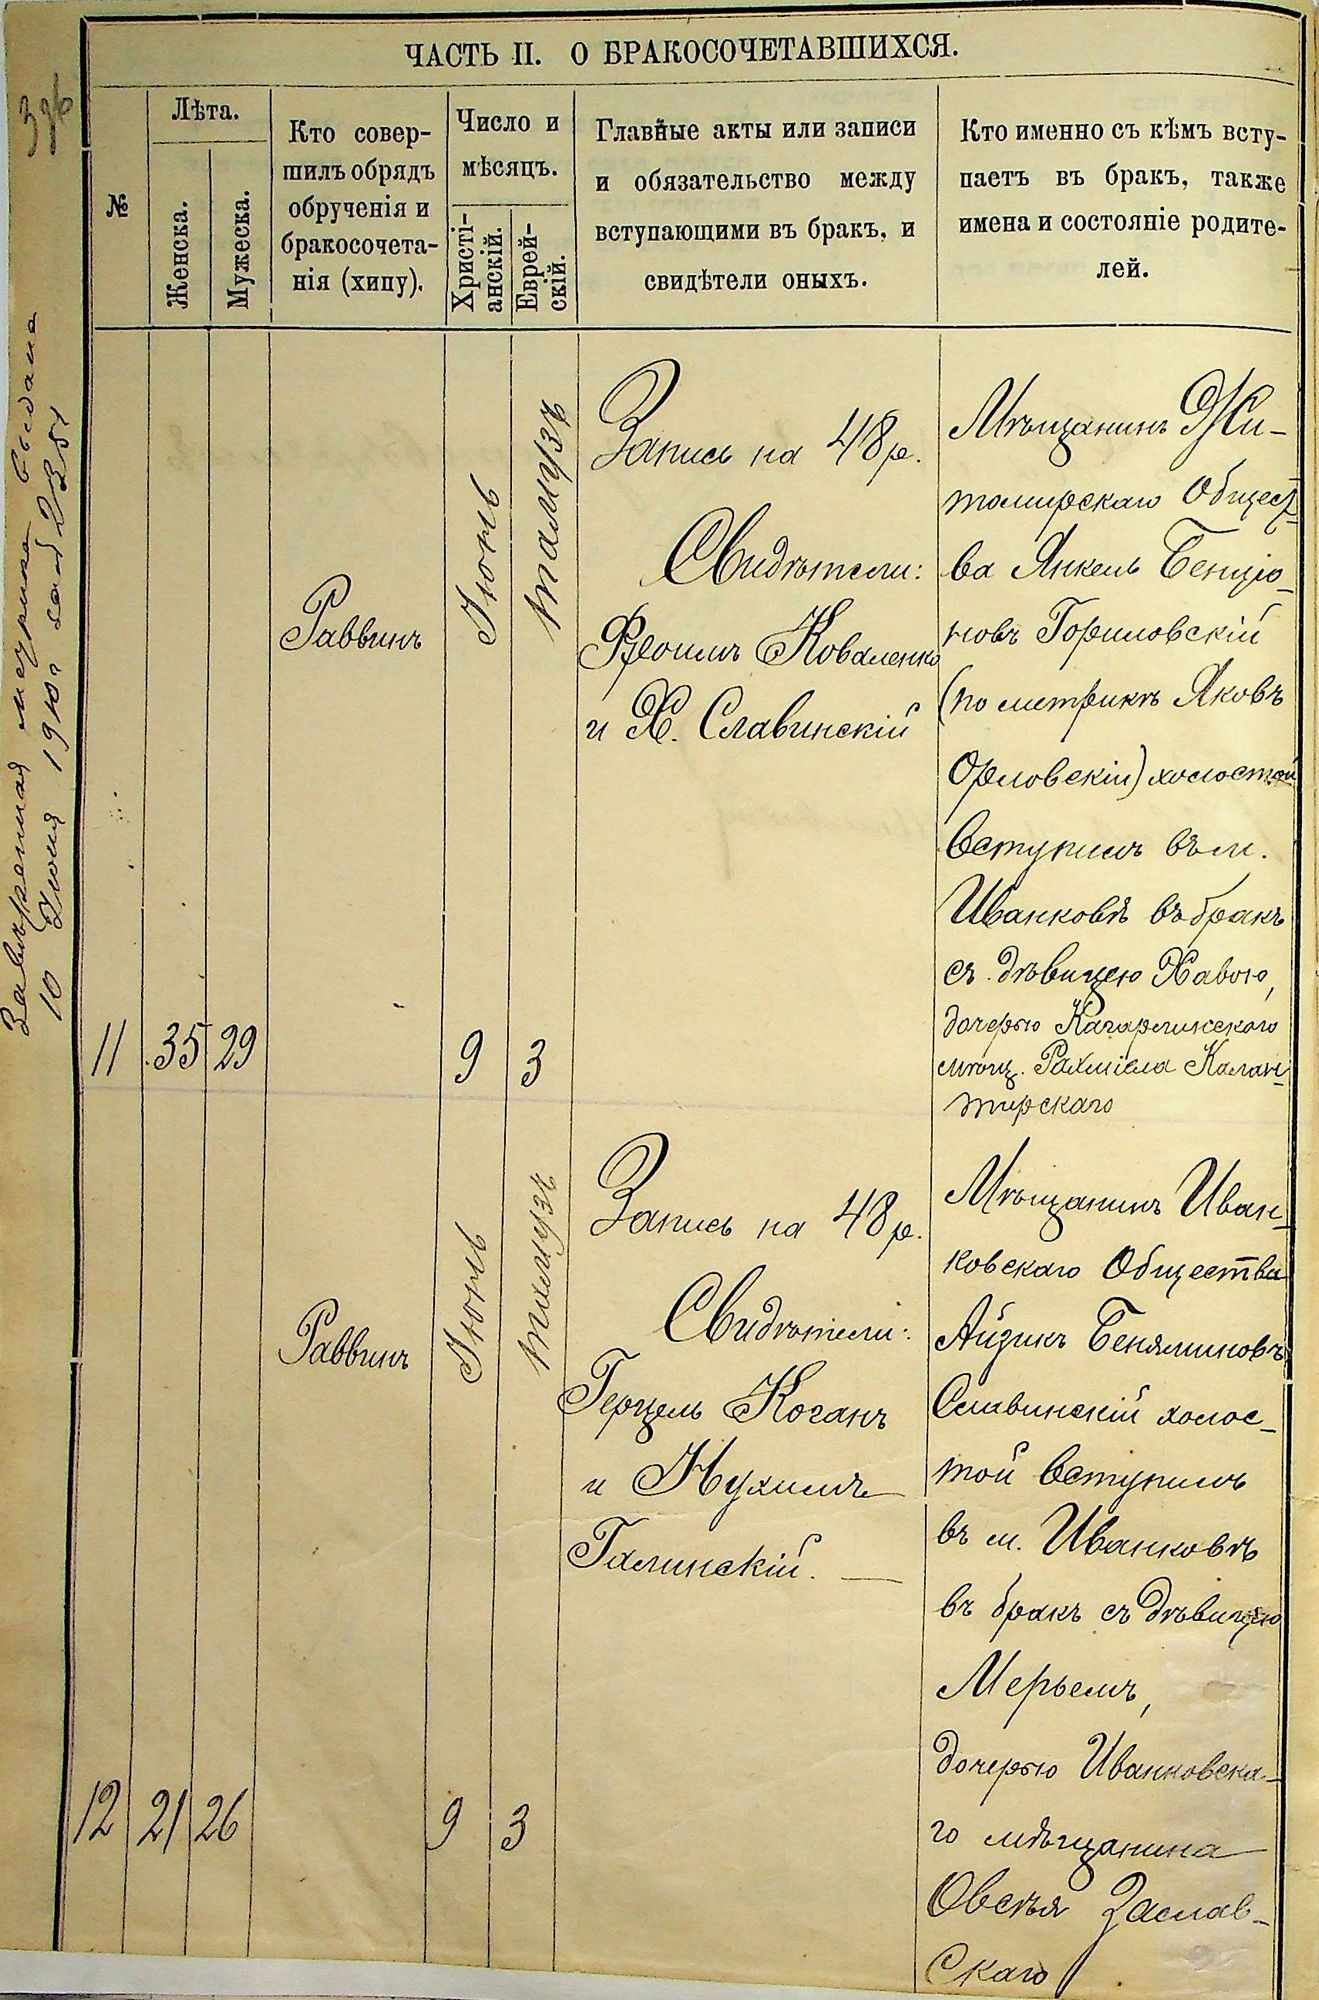 ЧАСТЬ II. О БРАКОСОЧЕТАВШИХСЯ.
№
Лѣта.
Женска.
Мужеска.
Кто совер-
шилъ обрядъ
обрученія и
бракосочета-
нія (хипу).
Число и
мѣсяцъ.
Христі-
анскій.
Еврей-
скій.
Главные акты или записи
и обязательство между
вступающими въ бракъ, и
свидѣтели оныхъ.
Кто именно съ кѣмъ всту-
паетъ въ бракъ, также
имена и состояніе родите-
лей.
Завѣренная метрика выдана
10 Іюня 1910 г. за № 2351
11
35
29
Раввинъ
Іюнь
9
Тамузъ
3
Запись на 48 р.
Свидѣтели:
Фроимъ Коваленко
и Х. Славинскій
Мѣщанинъ Жи-
томирскаго Общест-
ва Янкель Бенціо-
новъ Гориловскій
(по метрикѣ Яковъ
Орловскій) холостой
вступилъ въ м.
Иванковѣ въ бракъ
съ дѣвицею Хавою,
дочерью Кагарликскаго
мѣщ. Рахміела Калан-
тирскаго
12
21
26
Раввинъ
Іюнь
9
Тамузъ
3
Запись на 48 р.
Свидѣтели:
Герцель Коганъ
и Нухимъ
Галинскій. —
Мѣщанинъ Иван-
ковскаго Общества
Айзикъ Беняминовъ
Славинскій холос-
той вступилъ
въ м. Иванковѣ
въ бракъ съ дѣвицею
Мерьемъ,
дочерью Иванковска-
го мѣщанина
Овсѣя Заслав-
скаго